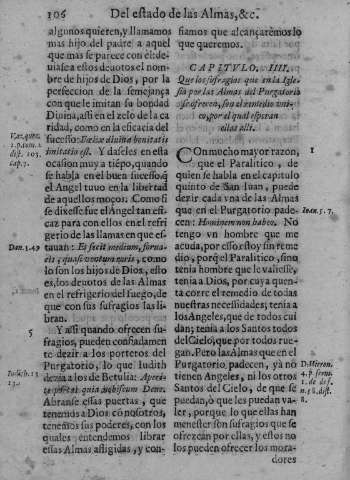 106 Del estado de las Almas, &c.
algunos quieren, y llamamos
mas hijo del padre a aquel
que mas se parece con el: de-
uiase a estos deuotos el nom-
bre de hijos de Dios, por la
perfeccion de la semejança
con que le imitan su bondad
Diuina, assi en el zelo de la ca
ridad, como en la eficacia del
sucesso: diuina bonitatis
imitatio est. Y dar les en esta
ocasion muy a tiẽpo, quando
se habla en el buen sucesso, q̃
el Angel tuuo en la libertad
de aquellos moços. Como si
se dixesse fue el Angel tan efi-
caz para con ellos en el refri
gerio de las llamas en que es-
tauan: Et fecit medium, forna-
cis, quasi ventum roris, como
lo son los hijos de Dios, esto
es, los deuotos de las Almas
en el refrigerio del fuego, de
que con sus sufragios las li-
bran.
Y assi quando ofrecen su-
fragios, pueden confiadamen
te dezir a los porteros del
Purgatorio, lo que Iudith
dezia a los de Betulia: Aperi-
te portas quia nobiscum Deus.
Abranse essas puertas, que
tenemos a Dios cõ nosotros,
tenemos sus poderes, con los
quales entendemos librar
essas Almas afligidas, y con-
Dan. 3.49
5
Iudith. 13
13.
siamos que alcançarèmos lo
que queremos.
CAPITVLO. IIII.
Que los sufragios que en la Igle
sia por las Almas del Purgatorio
se ofrecen, son el remedio vni-
co, por el qual esperan
ellas alli.
COn mucho mayor razon,
que el Paralitico, de
quien se habla en el capitulo
quinto de San Iuan, puede
dezir cada vna de las Almas
que en el Purgatorio pade-
cen: Hominem non habeo. No
tengo vn hombre que me
acuda, por esso estoy sin reme
dio, porq̃ el Paralitico, sino
tenia hombre que le valiesse,
tenia a Dios, por cuya quen-
ta corre el remedio de todas
nuestras necesidades; tenia a
los Angeles, que de todos cui
dan; tenia a los Santos todos
del Cielo, que por todos rue-
gan. Pero las Almas que en el
Purgatorio padecen, ya no
tienen Angeles, ni los otros
Santos del Cielo, de que se
puedan, ò que les puedan va-
ler, porque lo que ellas han
menester son sufragios que se
ofrezcan por ellas, y estos no
los pueden ofrecer los mora-
dores
1
Ioan. 5. 7.